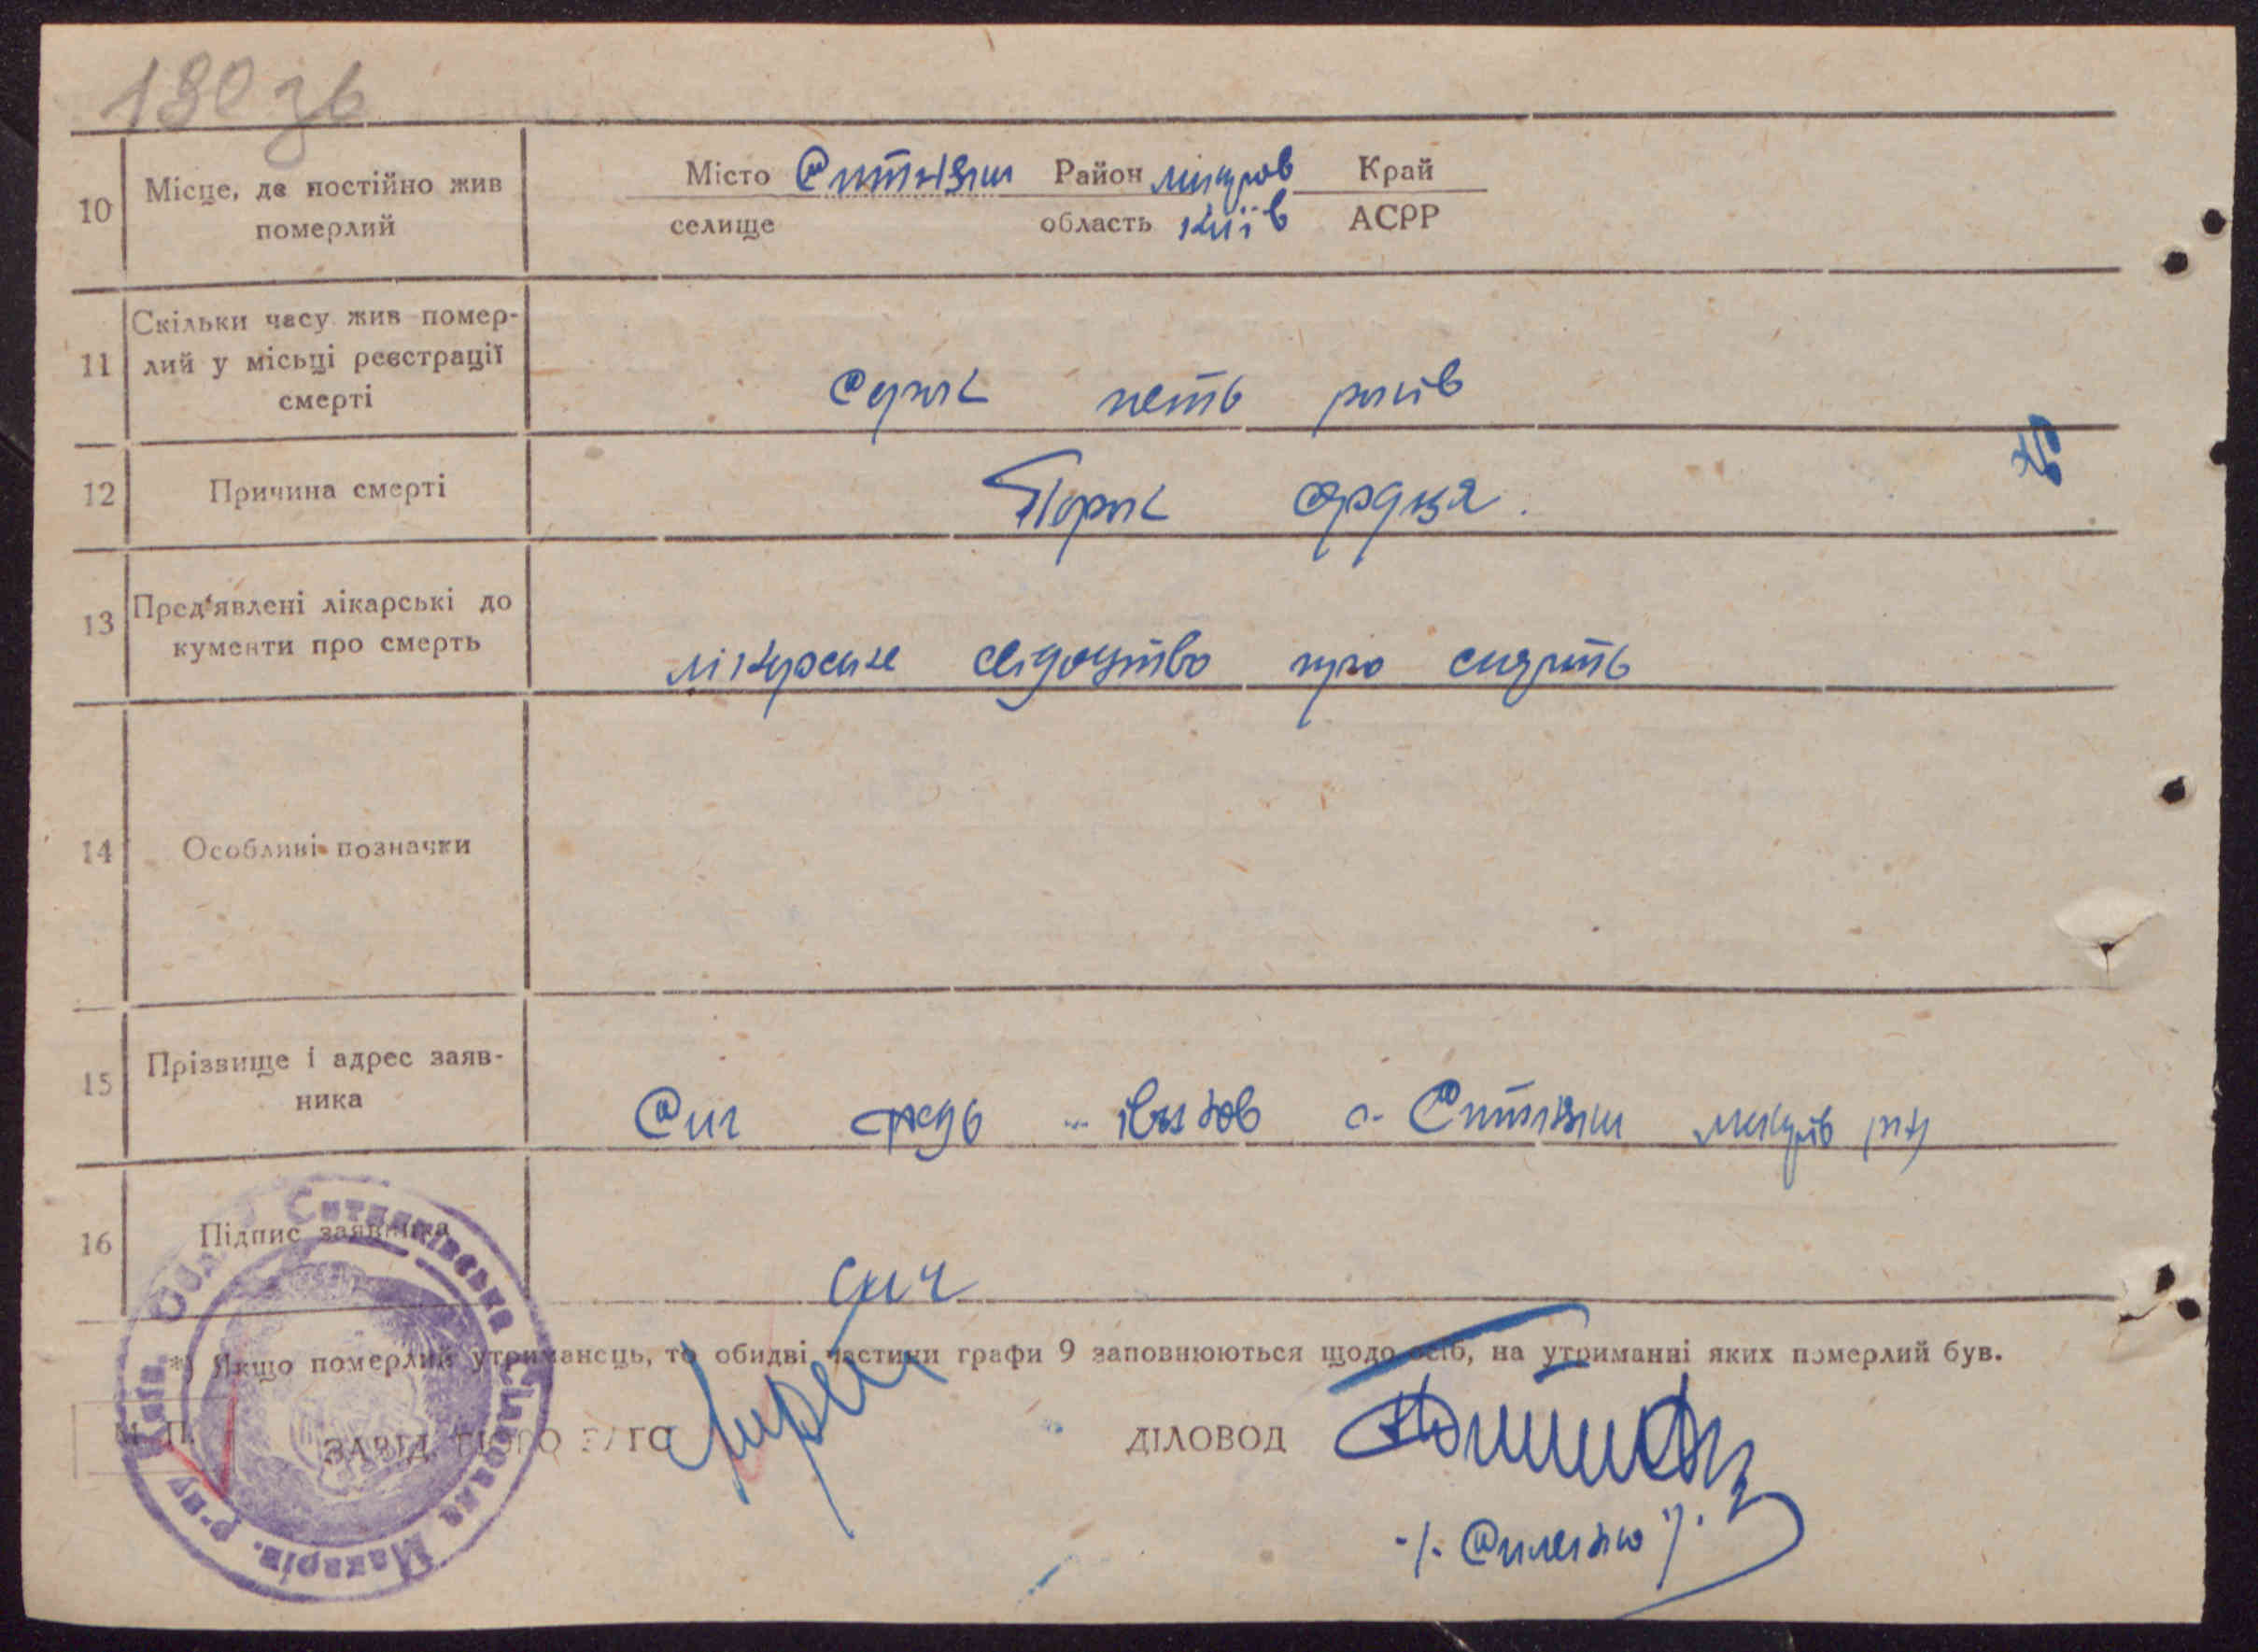 180 зв
10 Місце, де постійно жив померлий
Місто Ситняки Район Макаров Край
селище область Київ АСРР
11 Скільки часу жив померлий у місьці реєстрації смерті
Сорок петь років
12 Причина смерті
Порок сердця.
13 Пред'явлені лікарські документи про смерть
лікарське свідоцтво про смерть
14 Особливі позначки
15 Прізвище і адрес заявника
Сич с. Ситняки Макарів р-н
16 Підпис заявника
Сич
*) Якщо померлий утриманець, то обидві частини графи 9 заповнюються щодо осіб, на утриманні яких померлий був.
М. П. ЗАВІД. БЮРО ЗАГС ДІЛОВОД
Ситняківська Сільрада Макарів. р-ну Київ. Обл.